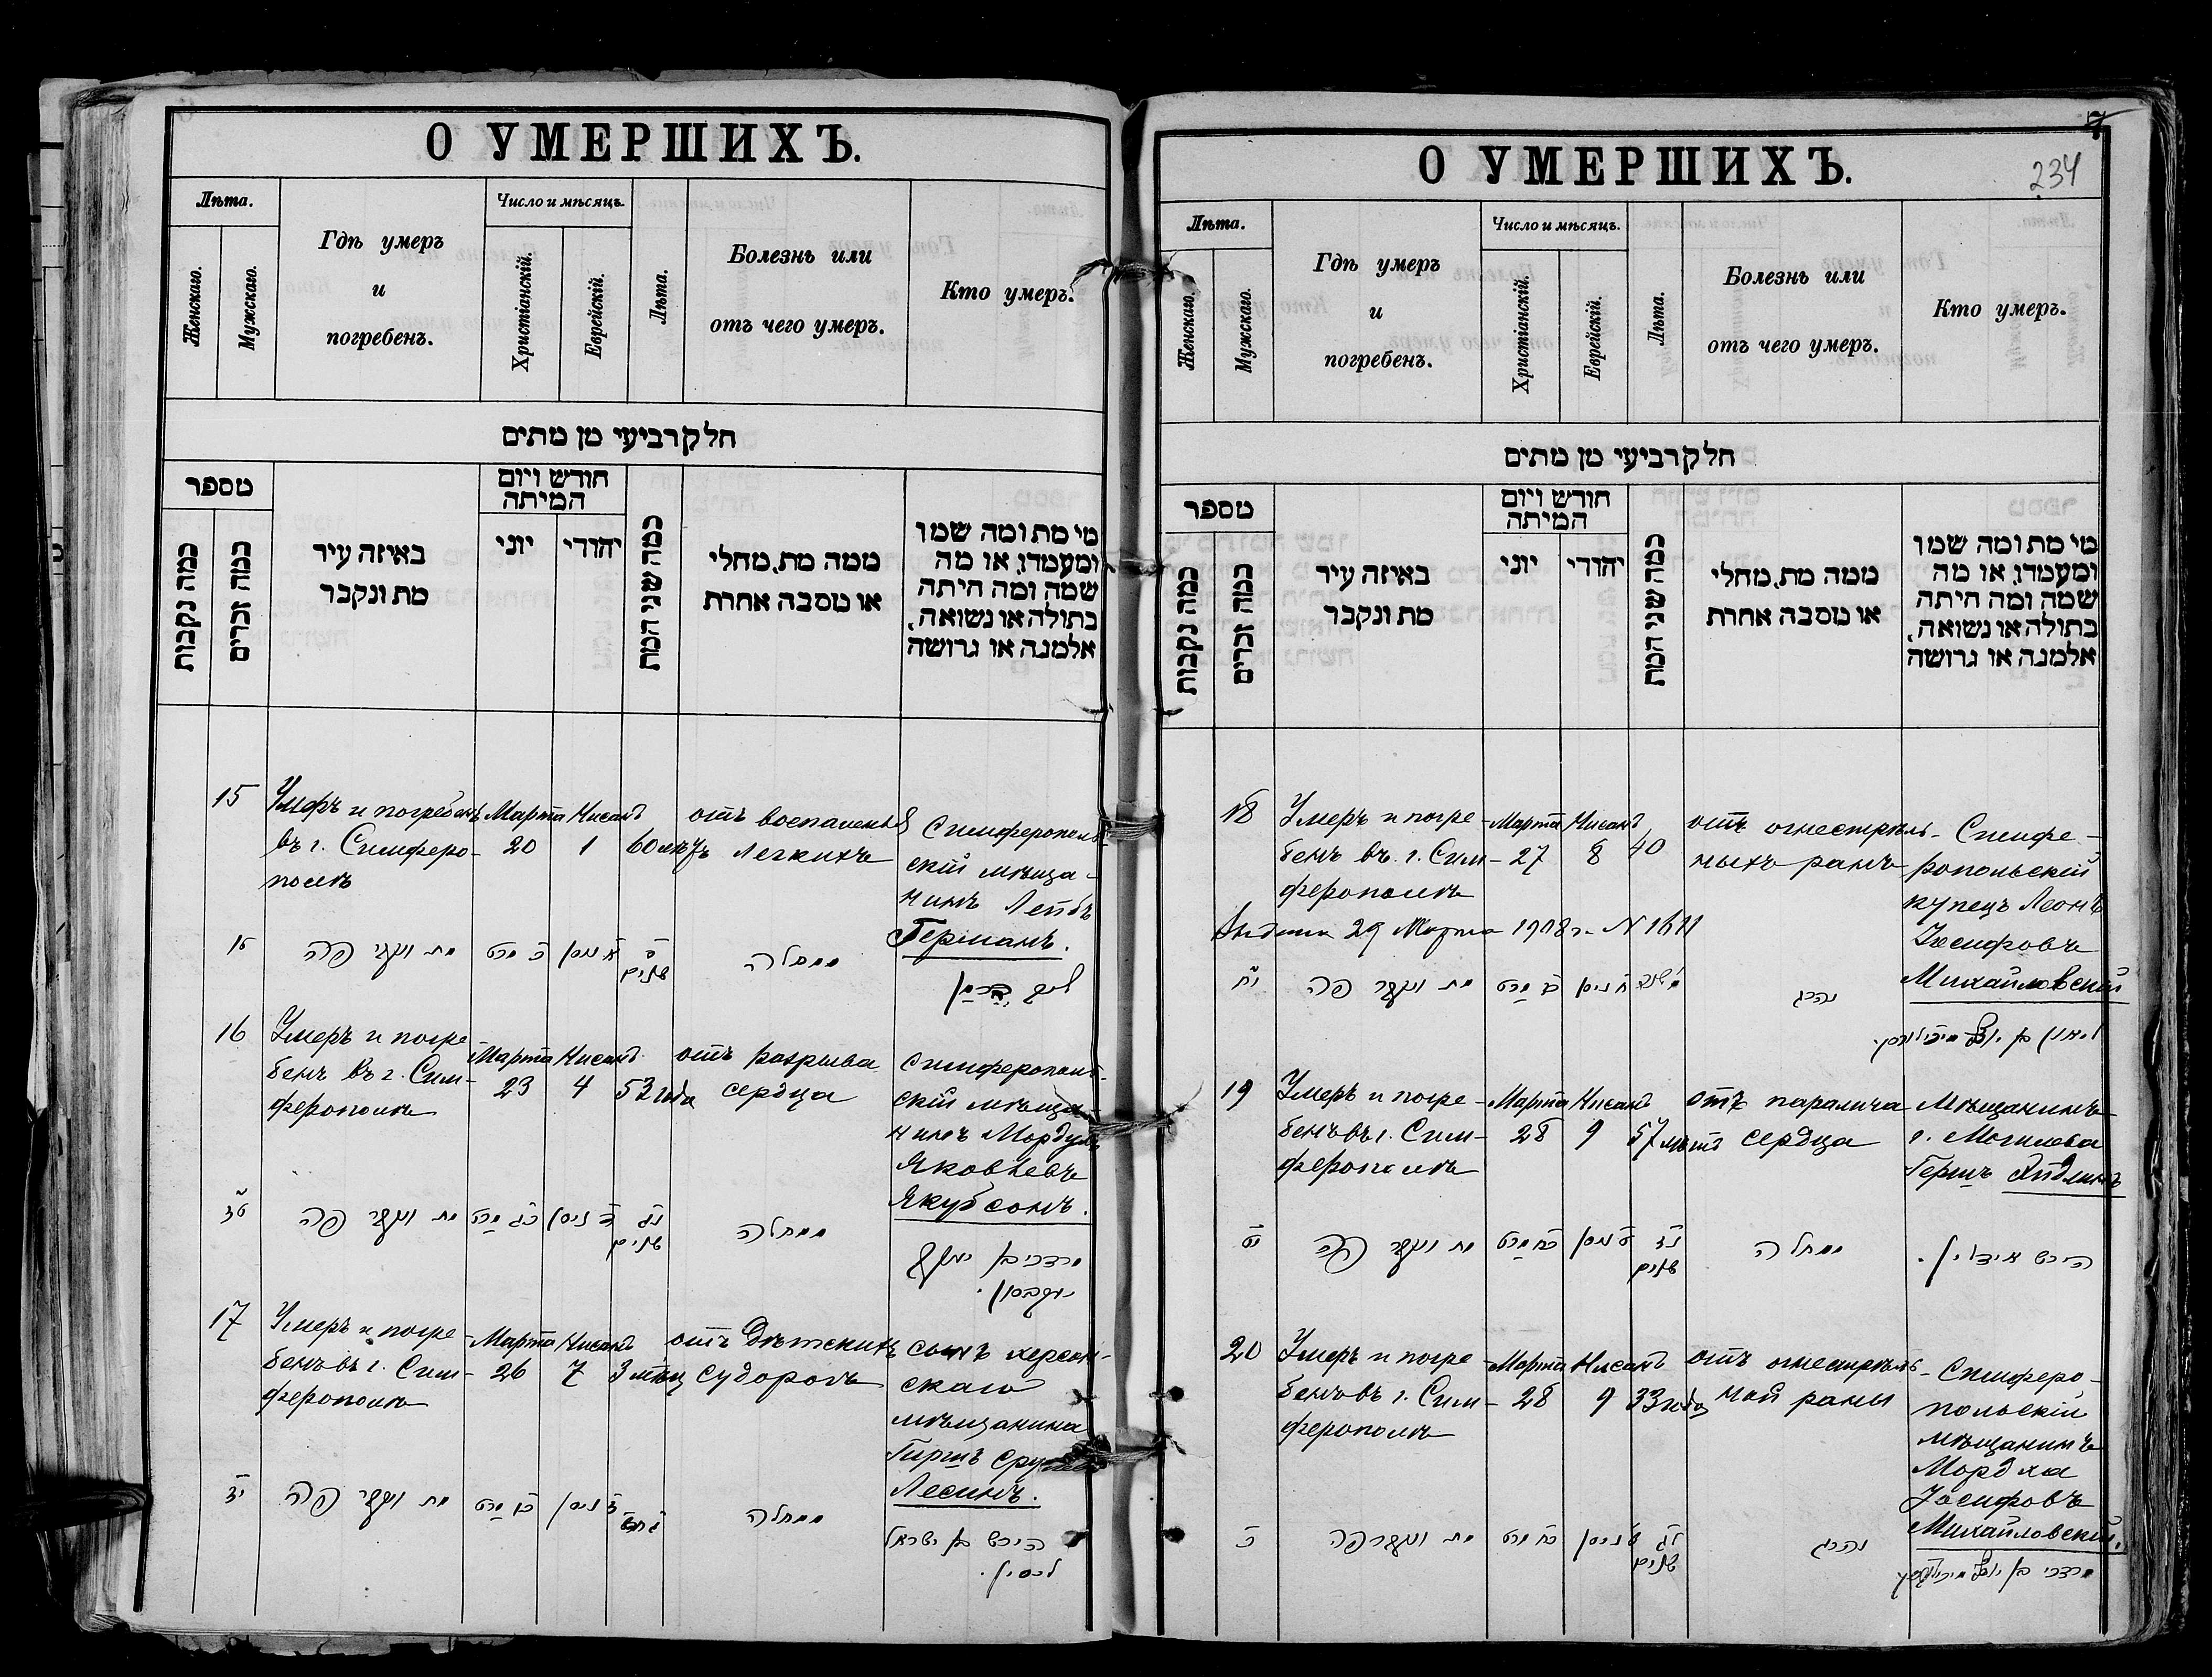 О УМЕРШИХЪ.
Лѣта.
Женскаго.
Мужскаго.
Гдѣ умеръ
и
погребенъ.
Число и мѣсяцъ.
Христіанскій.
Еврейскій.
Лѣта.
Болезнь или
отъ чего умеръ.
Кто умеръ.
חלק רביעי מן מתים
מספר
כמה נקבות
כמה זכרים
באיזה עיר
מת ונקבר
חודש ויום
המיתה
יוני
יהודי
כמה שני המת
ממה מת, מחלי
או מסבה אחרת
מי מת ומה שמו
ומעמדו, או מה
שמה ומה היתה
בתולה או נשואה,
אלמנה או גרושה
15
Умеръ и погребенъ
въ г. Симферо-
полѣ
Марта
20
Нисанъ
1
60 лѣтъ
отъ воспаленья
легкихъ
Симферополь-
скій мѣща-
нинъ Лейбъ
Германъ.
מת ונקבר פה
כ מרט
א ניסן
ס
שנים
ממחלה
16
Умеръ и погре-
бенъ въ г. Сим-
ферополѣ
Марта
23
Нисанъ
4
53 года
отъ разрыва
сердца
Симферополь-
скій мѣща-
нинъ Мордухъ
Яковлевъ
Якубсонъ.
טז
מת ונקבר פה
כג מרט
ד ניסן
נג
שנים
ממחלה
מרדכי בן יעקב
יעקבסון.
17
Умеръ и погре-
бенъ въ г. Сим-
ферополѣ
Марта
26
Нисанъ
7
3 мѣсц
отъ дѣтскихъ
судорогъ
сынъ херсон-
скаго
мѣщанина
Гиршъ
Лесинъ.
יז
מת ונקבר פה
כו מרט
ז ניסן
ממחלה
הירש בן ישראל
לעסין.
О УМЕРШИХЪ.
234
Лѣта.
Женскаго.
Мужскаго.
Гдѣ умеръ
и
погребенъ.
Число и мѣсяцъ.
Христіанскій.
Еврейскій.
Лѣта.
Болезнь или
отъ чего умеръ.
Кто умеръ.
חלק רביעי מן מתים
מספר
כמה נקבות
כמה זכרים
באיזה עיר
מת ונקבר
חודש ויום
המיתה
יוני
יהודי
כמה שני המת
ממה מת, מחלי
או מסבה אחרת
מי מת ומה שמו
ומעמדו, או מה
שמה ומה היתה
בתולה או נשואה,
אלמנה או גרושה
18
Умеръ и погре-
бенъ въ г. Сим-
ферополѣ
Марта
27
Нисанъ
8
40
отъ огнестрѣль-
ныхъ ранъ
Симфе-
ропольскій
купецъ Леонъ
Іосифовъ
Михайловскій
29 Марта 1908 г. N 1611
יח
מת ונקבר פה
כז מרט
ח ניסן
נהרג
19
Умеръ и погре-
бенъ въ г. Сим-
ферополѣ
Марта
28
Нисанъ
9
57 лѣтъ
отъ паралича
сердца
Мѣщанинъ
г. Могилева
Гершъ Айдлинъ
יט
מת ונקבר פה
כח מרט
ט ניסן
נז
שנים
ממחלה
הירש אידלין.
20
Умеръ и погре-
бенъ въ г. Сим-
ферополѣ
Марта
28
Нисанъ
9
33 года
отъ огнестрѣль-
ной раны
Симферо-
польскій
мѣщанинъ
Мордха
Іосифовъ
Михайловскій.
כ
מת ונקבר פה
כח מרט
ט ניסן
לג
שנים
נהרג